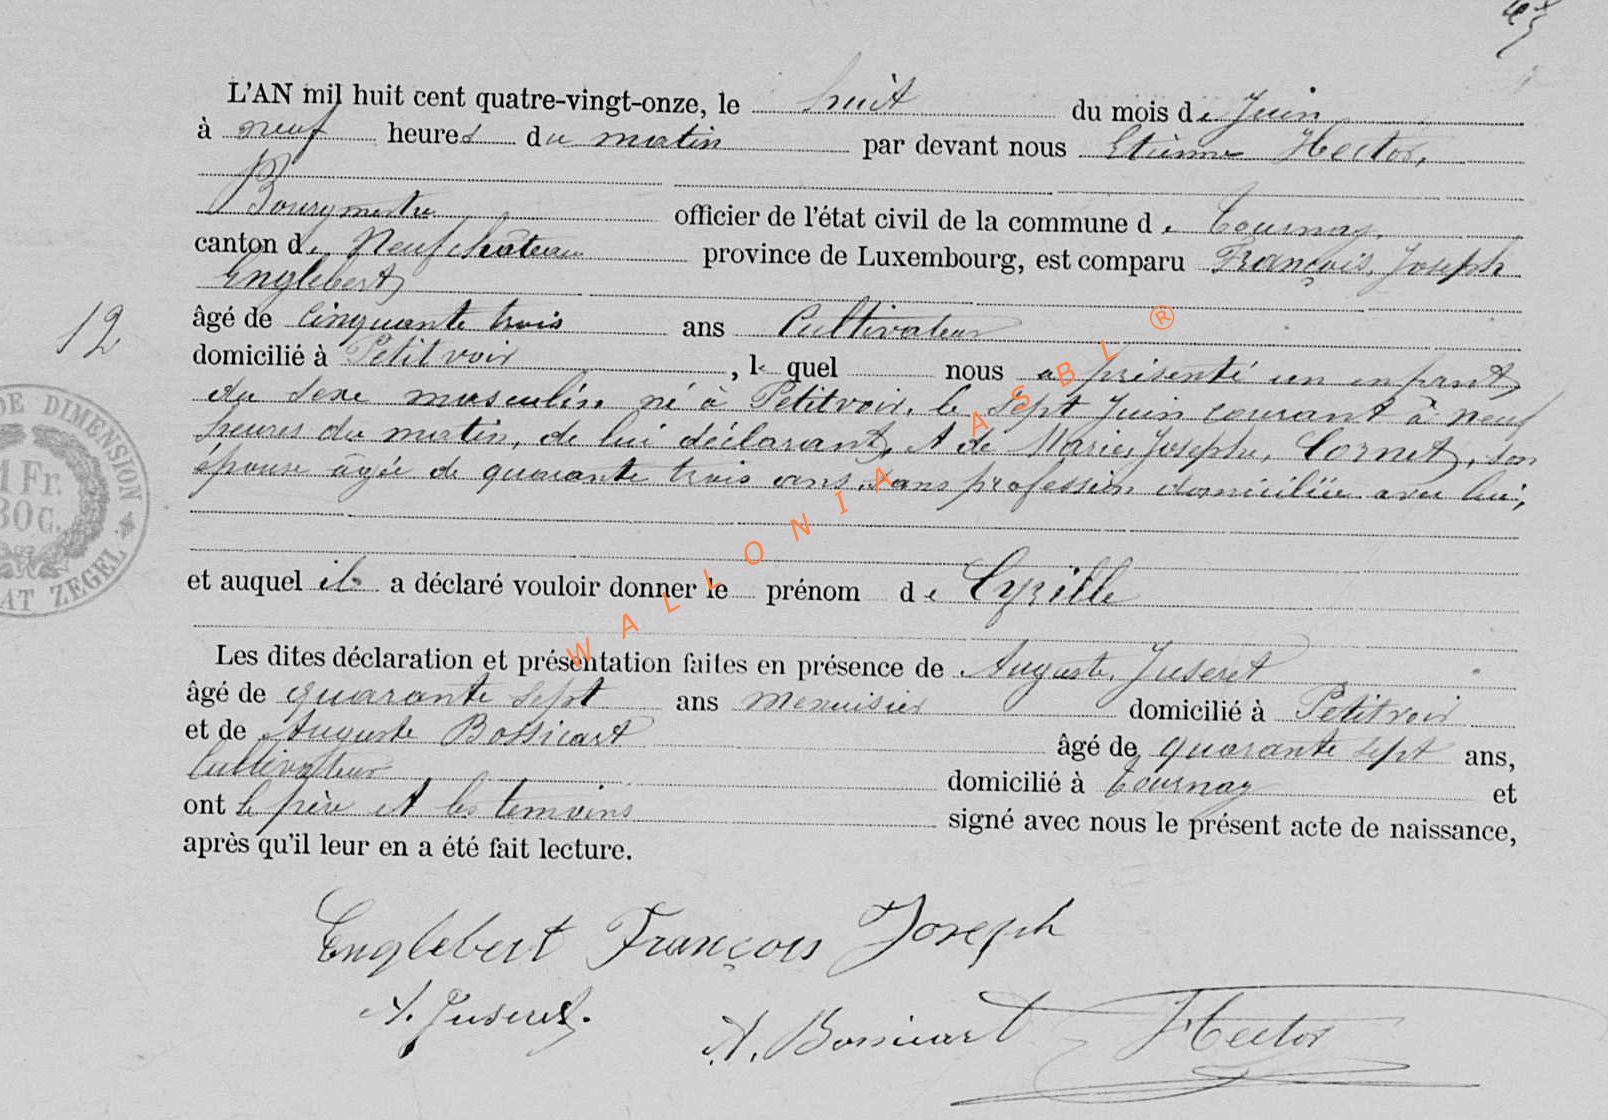 L'AN mil huit cent quatre-vingt-onze, le huit du mois de Juin
à neuf heures du matin par devant nous Etienne Hector,
Bourgmestre officier de l'état civil de la commune de Tournay,
canton de Neufchâteau province de Luxembourg, est comparu François, Joseph
Englebert
12
âgé de Cinquante trois ans Cultivateur
domicilié à Petitvoir, le quel nous a présenté un enfant,
du sexe masculin né à Petitvoir, le sept Juin courant à neuf
heures du matin, de lui déclarant, et de Marie, Joseph, Cornet, son
épouse âgée de quarante trois ans, sans profession domiciliée avec lui,
et auquel il a déclaré vouloir donner le prénom de Cyrille
Les dites déclaration et présentation faites en présence de Auguste, Juseret
âgé de quarante sept ans menuisier domicilié à Petitvoir
et de Auguste Bossicart âgé de quarante sept ans,
Cultivateur domicilié à Tournay et
ont le père et les temoins signé avec nous le présent acte de naissance,
après qu'il leur en a été fait lecture.
Englebert François Joseph
A. Juseret.
A. Bossicart Hector
DE DIMENSION
1 Fr.
30C.
ZEGEL
WALLONIA ASBL ®